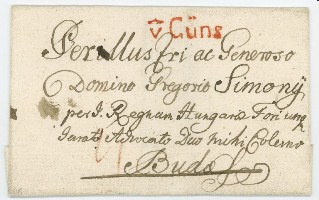 v̂ Güns
Perillustri ac Generoso
Domino Gregorio Simonÿ
per I. Regnum Hungariæ Fori utq
Jurato Advocato Duo mihi Colend
Buda